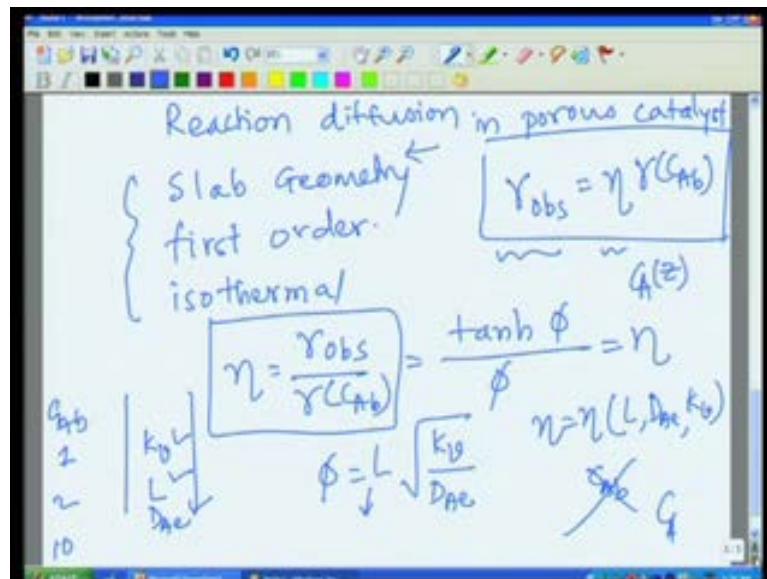 Reaction diffusion in porous catalyst
Slab Geometry
first order.
isothermal
r_obs = η r(C_Ab)
C_A(z)
η = r_obs / r(C_Ab) = tanh φ / φ = η
C_Ab
1
2
10
k_v
L
D_Ae
φ = L √(k_v / D_Ae)
η = η(L, D_Ae, k_v)